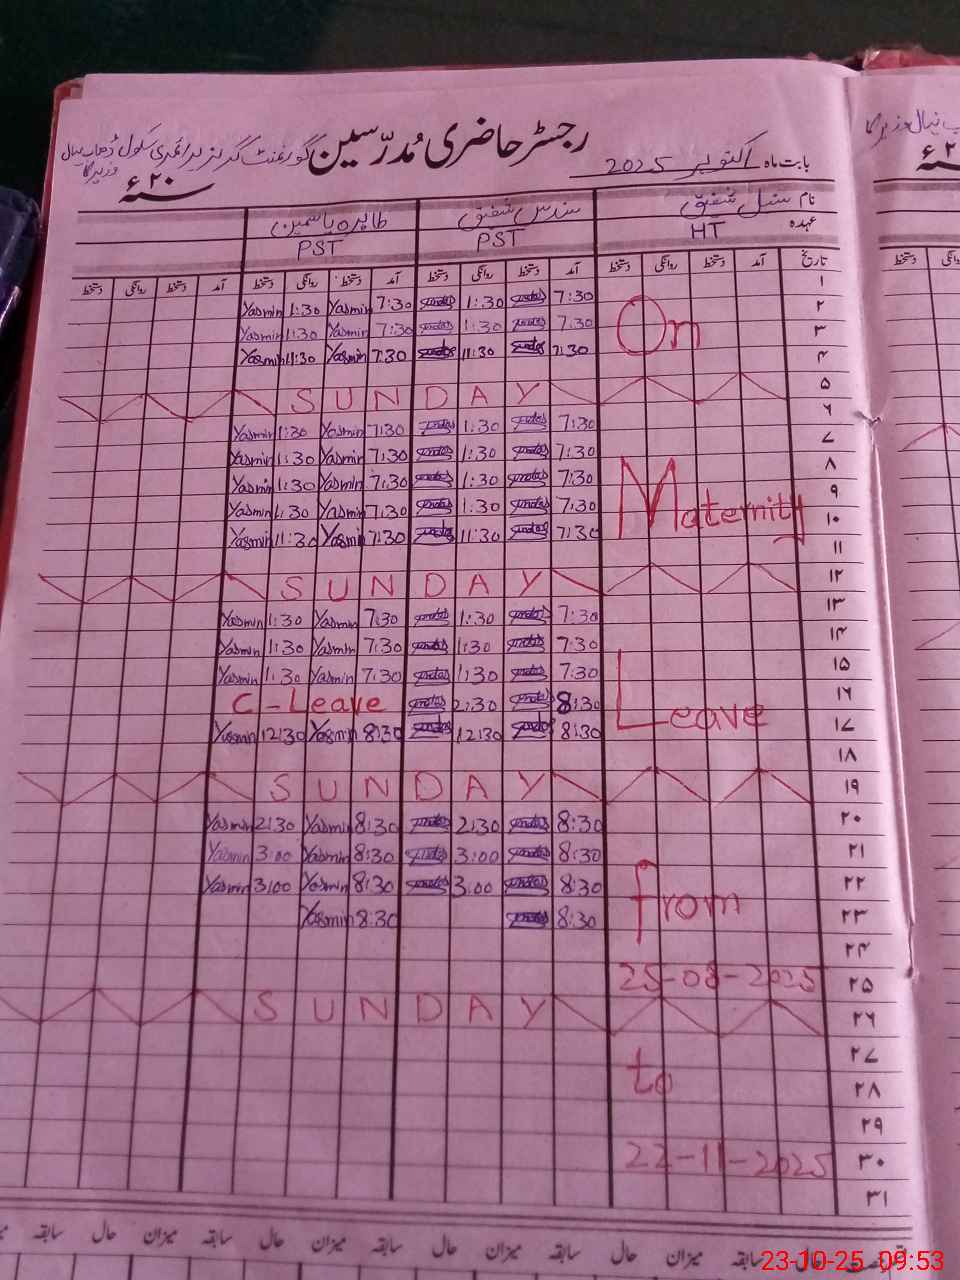 رجسٹر حاضری مُدرّسین گورنمنٹ گرلز پرائمری سکول ڈھاب نہال
بابت ماہ اکتوبر 2025 ۲۰ء
نام سنبل شفیق سندس شفیق طاہرہ یاسمین
عہدہ HT PST PST
تاریخ آمد دستخط روانگی دستخط آمد دستخط روانگی دستخط آمد دستخط روانگی دستخط آمد دستخط روانگی دستخط
۱ 7:30 1:30 7:30 Yasmin 1:30 Yasmin
۲ On 7:30 1:30 7:30 Yasmin 1:30 Yasmin
۳ 7:30 11:30 7:30 Yasmin 11:30 Yasmin
۴
۵ SUNDAY
۶ 7:30 1:30 7:30 Yasmin 1:30 Yasmin
۷ 7:30 1:30 7:30 Yasmin 1:30 Yasmin
۸ 7:30 1:30 7:30 Yasmin 1:30 Yasmin
۹ Maternity 7:30 1:30 7:30 Yasmin 1:30 Yasmin
۱۰ 7:30 11:30 7:30 Yasmin 11:30 Yasmin
۱۱
۱۲ SUNDAY
۱۳ 7:30 1:30 7:30 Yasmin 1:30 Yasmin
۱۴ 7:30 1:30 7:30 Yasmin 1:30 Yasmin
۱۵ 7:30 1:30 7:30 Yasmin 1:30 Yasmin
۱۶ Leave 8:30 2:30 C-Leave
۱۷ 8:30 12:30 8:30 Yasmin 12:30 Yasmin
۱۸
۱۹ SUNDAY
۲۰ 8:30 2:30 8:30 Yasmin 2:30 Yasmin
۲۱ 8:30 3:00 8:30 Yasmin 3:00 Yasmin
۲۲ from 8:30 3:00 8:30 Yasmin 3:00 Yasmin
۲۳ 8:30 8:30 Yasmin
۲۴
۲۵ 25-08-2025
۲۶ SUNDAY
۲۷ to
۲۸
۲۹
۳۰ 22-11-2025
۳۱
سابقہ حال میزان سابقہ حال میزان سابقہ حال میزان سابقہ حال
23-10-25 09:53